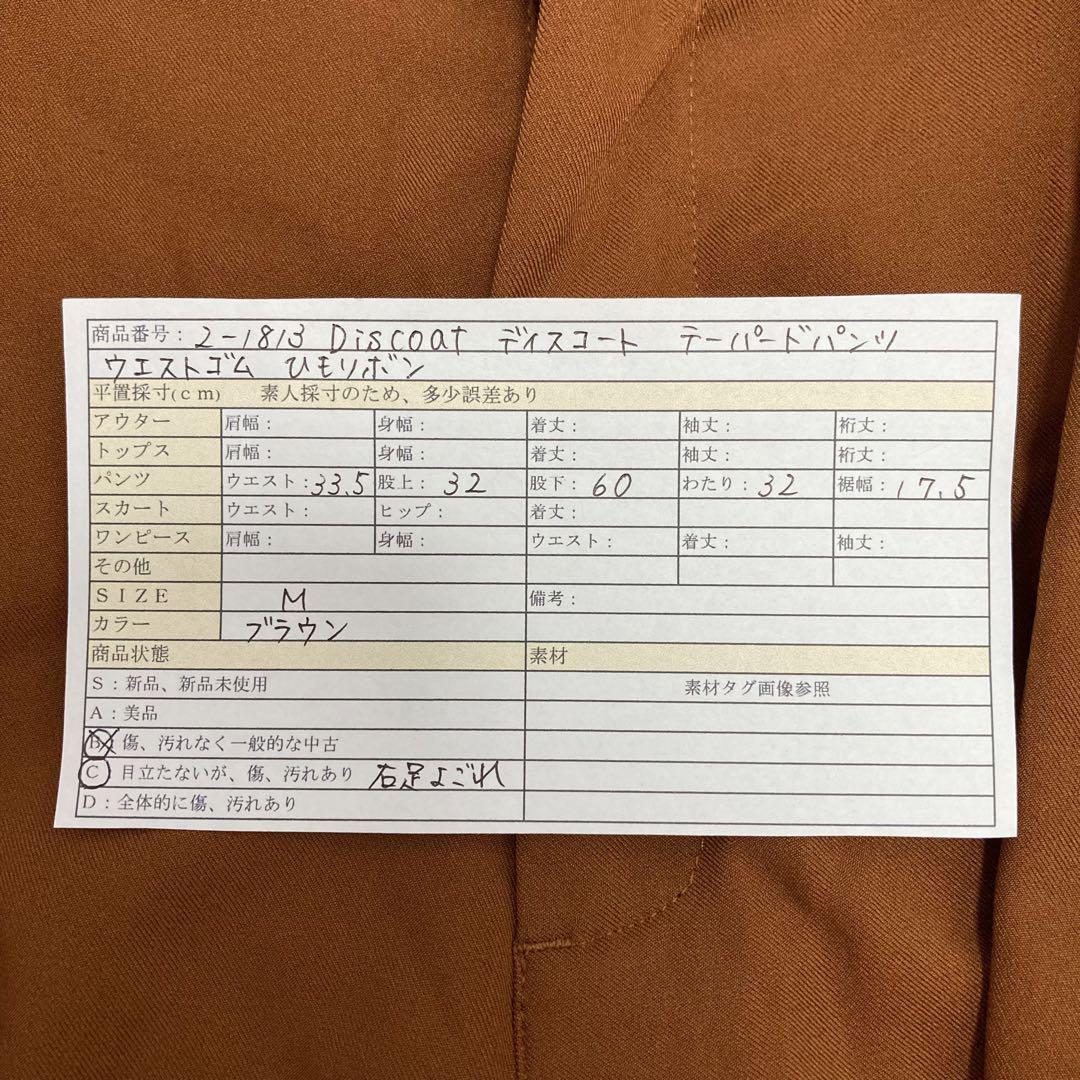 商品番号：2-1813 Discoat ディスコート テーパードパンツ
ウエストゴム ひもリボン
平置採寸(cm) 素人採寸のため、多少誤差あり
アウター 肩幅： 身幅： 着丈： 袖丈： 裄丈：
トップス 肩幅： 身幅： 着丈： 袖丈： 裄丈：
パンツ ウエスト：33.5 股上：32 股下：60 わたり：32 裾幅：17.5
スカート ウエスト： ヒップ： 着丈：
ワンピース 肩幅： 身幅： ウエスト： 着丈： 袖丈：
その他
SIZE M 備考：
カラー ブラウン
商品状態 素材
S：新品、新品未使用 素材タグ画像参照
A：美品
B：傷、汚れなく一般的な中古
C 目立たないが、傷、汚れあり 右足よごれ
D：全体的に傷、汚れあり